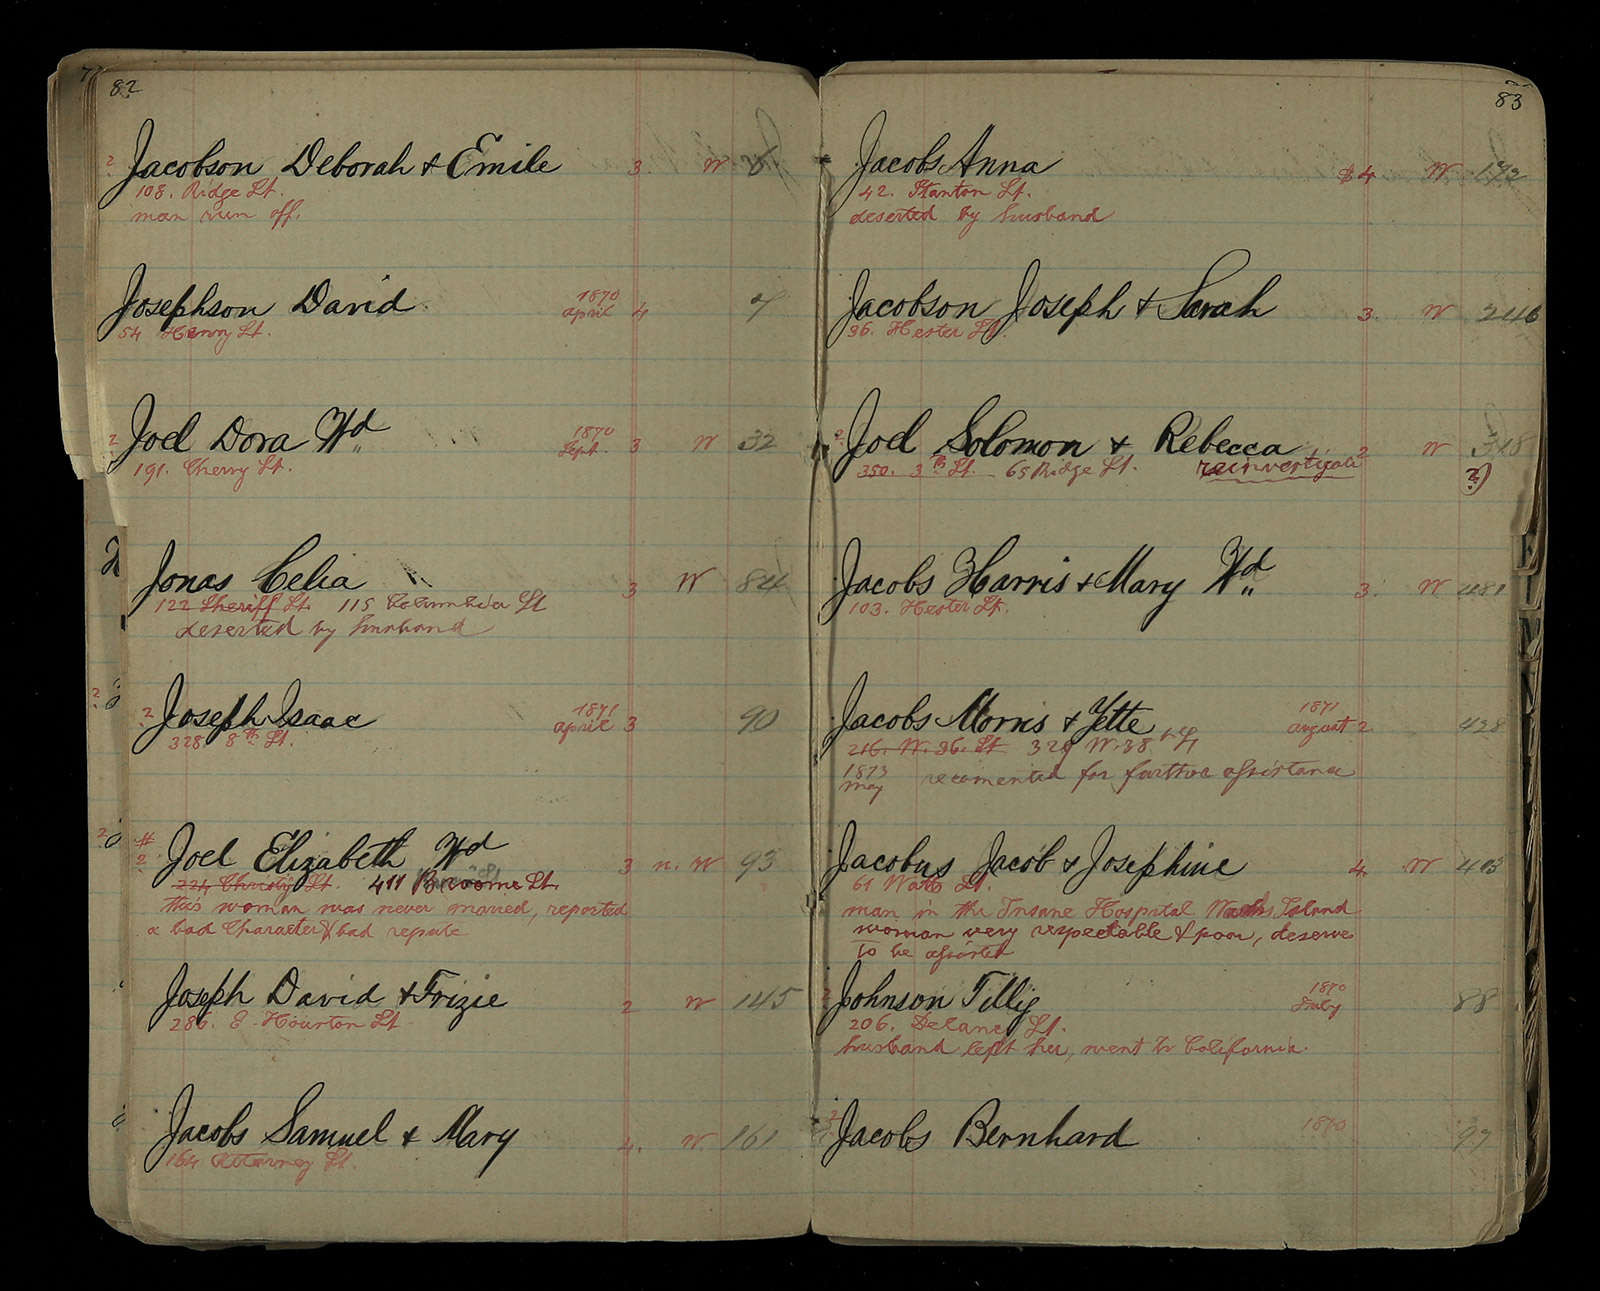 82
Jacobson Deborah & Emile 3 W
108. Ridge St.
man run off.
Josephson David 1870 april 4
54 Henry St.
2 Joel Dora Wd 1870 Sept. 3 W 32
191. Cherry St.
Jonas Celia 3 W 84
122 Sheriff St. 115 Columbia St
deserted by husband
2 Joseph Isaac 1871 april 3 90
328 8th St.
#
2 Joel Elizabeth Wd 3 n. W 93
224 Christy St. 411 Broome St.
this woman was never marred, reported
a bad Character & bad repute
Joseph David & Frizie 2 W 145
286. E. Houston St
Jacobs Samuel & Mary 4. W. 161
164 Attorney St.
83
Jacobs Anna $4 W 172
42. Stanton St.
deserted by husband
Jacobson Joseph & Sarah 3. W 246
96. Hester St.
Joel Solomon & Rebecca 2 W 318
350. 3th St. 65 Ridge St. reinvertigate 2)
Jacobs Harris & Mary Wd 3. W 481
103. Hester St.
Jacobs Morris & Yette 1871 august 2 428
216. W. 36. St 329 W. 38
1873 may recomented for furthre assistance
Jacobus Jacob & Josephine 4 W 403
61 Watts St.
man in the Insane Hospital Wards Island
woman very respectable & poor, deserve
to be assisted
Johnson Tillig 1870 July 88
206. Delancy St.
husband left her, went to California.
Jacobs Bernhard 1870 97